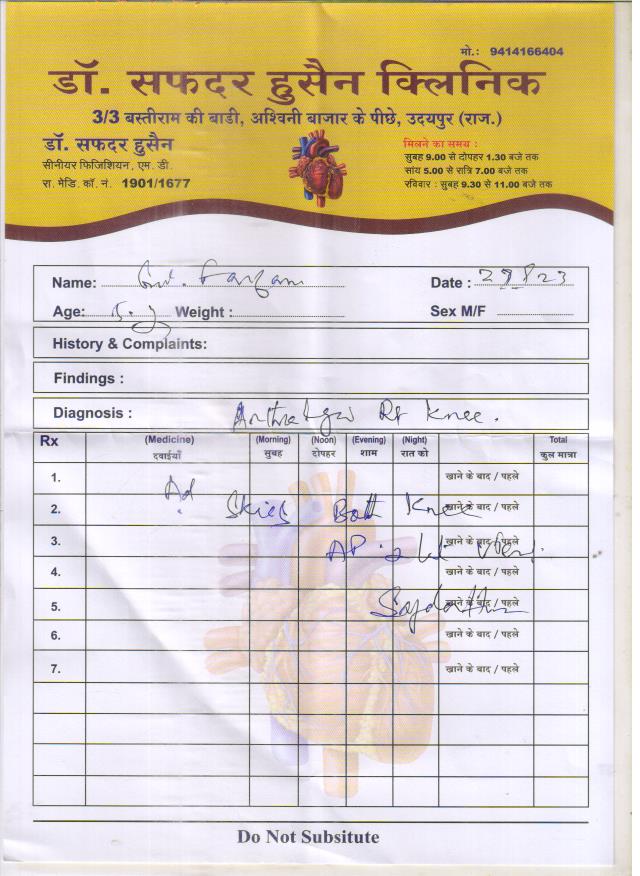 मो.: 9414166404
डॉ. सफदर हुसैन क्लिनिक
3/3 बस्तीराम की बाडी, अश्विनी बाजार के पीछे, उदयपुर (राज.)
डॉ. सफदर हुसैन
सीनीयर फिजिशियन, एम. डी.
रा. मेडि. कॉ. नं. 1901/1677
मिलने का समय :
सुबह 9.00 से दोपहर 1.30 बजे तक
सांय 5.00 से रात्रि 7.00 बजे तक
रविवार : सुबह 9.30 से 11.00 बजे तक
Name:
Date : 29 8 23
Age: Weight :
Sex M/F
History & Complaints:
Findings :
Diagnosis : Rt Knee.
Rx (Medicine) (Morning) (Noon) (Evening) (Night) Total
दवाईयाँ सुबह दोपहर शाम रात को कुल मात्रा
1. खाने के बाद / पहले
Ad
2. Both Knee खाने के बाद / पहले
3. AP खाने के बाद / पहले
4. खाने के बाद / पहले
5. खाने के बाद / पहले
6. खाने के बाद / पहले
7. खाने के बाद / पहले
Do Not Subsitute